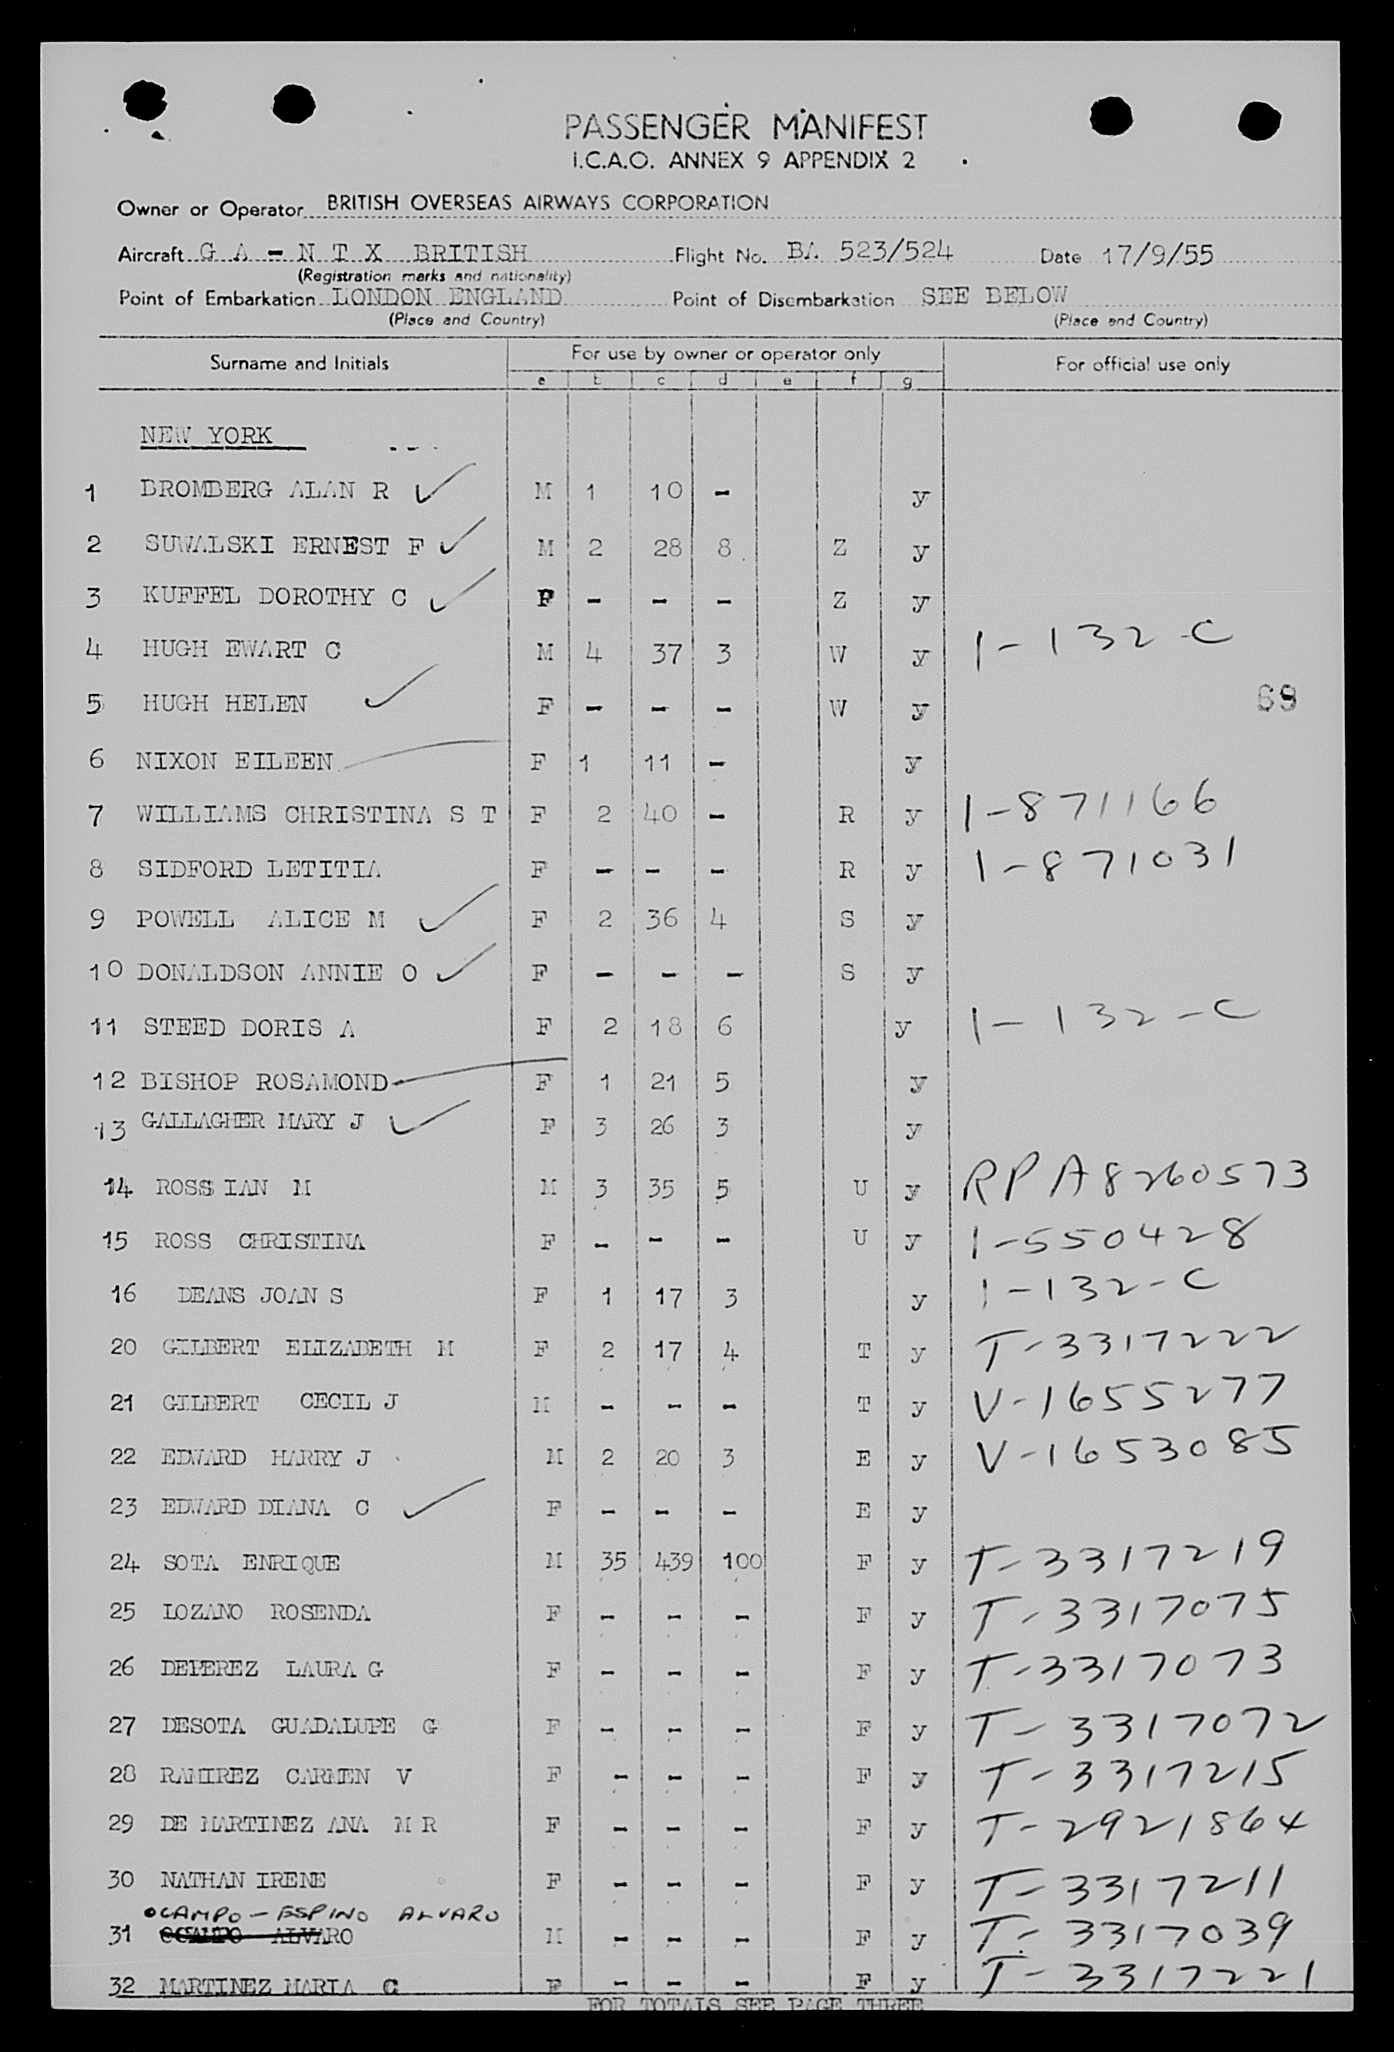 PASSENGER MANIFEST
I.C.A.O. ANNEX 9 APPENDIX 2
Owner or Operator BRITISH OVERSEAS AIRWAYS CORPORATION
Aircraft G A - N T X BRITISH Flight No. BA 523/524 Date 17/9/55
(Registration marks and nationality)
Point of Embarkation LONDON ENGLAND Point of Disembarkation SEE BELOW
(Place and Country) (Place and Country)
Surname and Initials For use by owner or operator only For official use only
a b c d e f g
NEW YORK
1 BROMBERG ALAN R M 1 10 - y
2 SUWALSKI ERNEST F M 2 28 8 Z y
3 KUFFEL DOROTHY C F - - - Z y
4 HUGH EWART C M 4 37 3 W y 1-132-C
5 HUGH HELEN F - - - W y
69
6 NIXON EILEEN F 1 11 - y
7 WILLIAMS CHRISTINA S T F 2 40 - R y 1-871166
8 SIDFORD LETITIA F - - - R y 1-871031
9 POWELL ALICE M F 2 36 4 S y
10 DONALDSON ANNIE O F - - - S y
11 STEED DORIS A F 2 18 6 y 1-132-C
12 BISHOP ROSAMOND F 1 21 5 y
13 GALLAGHER MARY J F 3 26 3 y
14 ROSS IAN M M 3 35 5 U y RPA8260573
15 ROSS CHRISTINA F - - - U y 1-550428
16 DEANS JOAN S F 1 17 3 y 1-132-C
20 GILBERT ELIZABETH M F 2 17 4 T y T-3317222
21 GILBERT CECIL J M - - - T y V-1655277
22 EDWARD HARRY J M 2 20 3 E y V-1653085
23 EDWARD DIANA C F - - - E y
24 SOTA ENRIQUE M 35 439 100 F y T-3317219
25 LOZANO ROSENDA F - - - F y T-3317075
26 DEPEREZ LAURA G F - - - F y T-3317073
27 DESOTA GUADALUPE G F - - - F y T-3317072
28 RAMIREZ CARMEN V F - - - F y T-3317215
29 DE MARTINEZ ANA M R F - - - F y T-2921864
30 NATHAN IRENE F - - - F y T-3317211
OCAMPO-ESPINO ALVARO
31 OCAMPO ALVARO M - - - F y T-3317039
32 MARTINEZ MARIA C F - - - F y T-3317221
FOR TOTALS SEE PAGE THREE